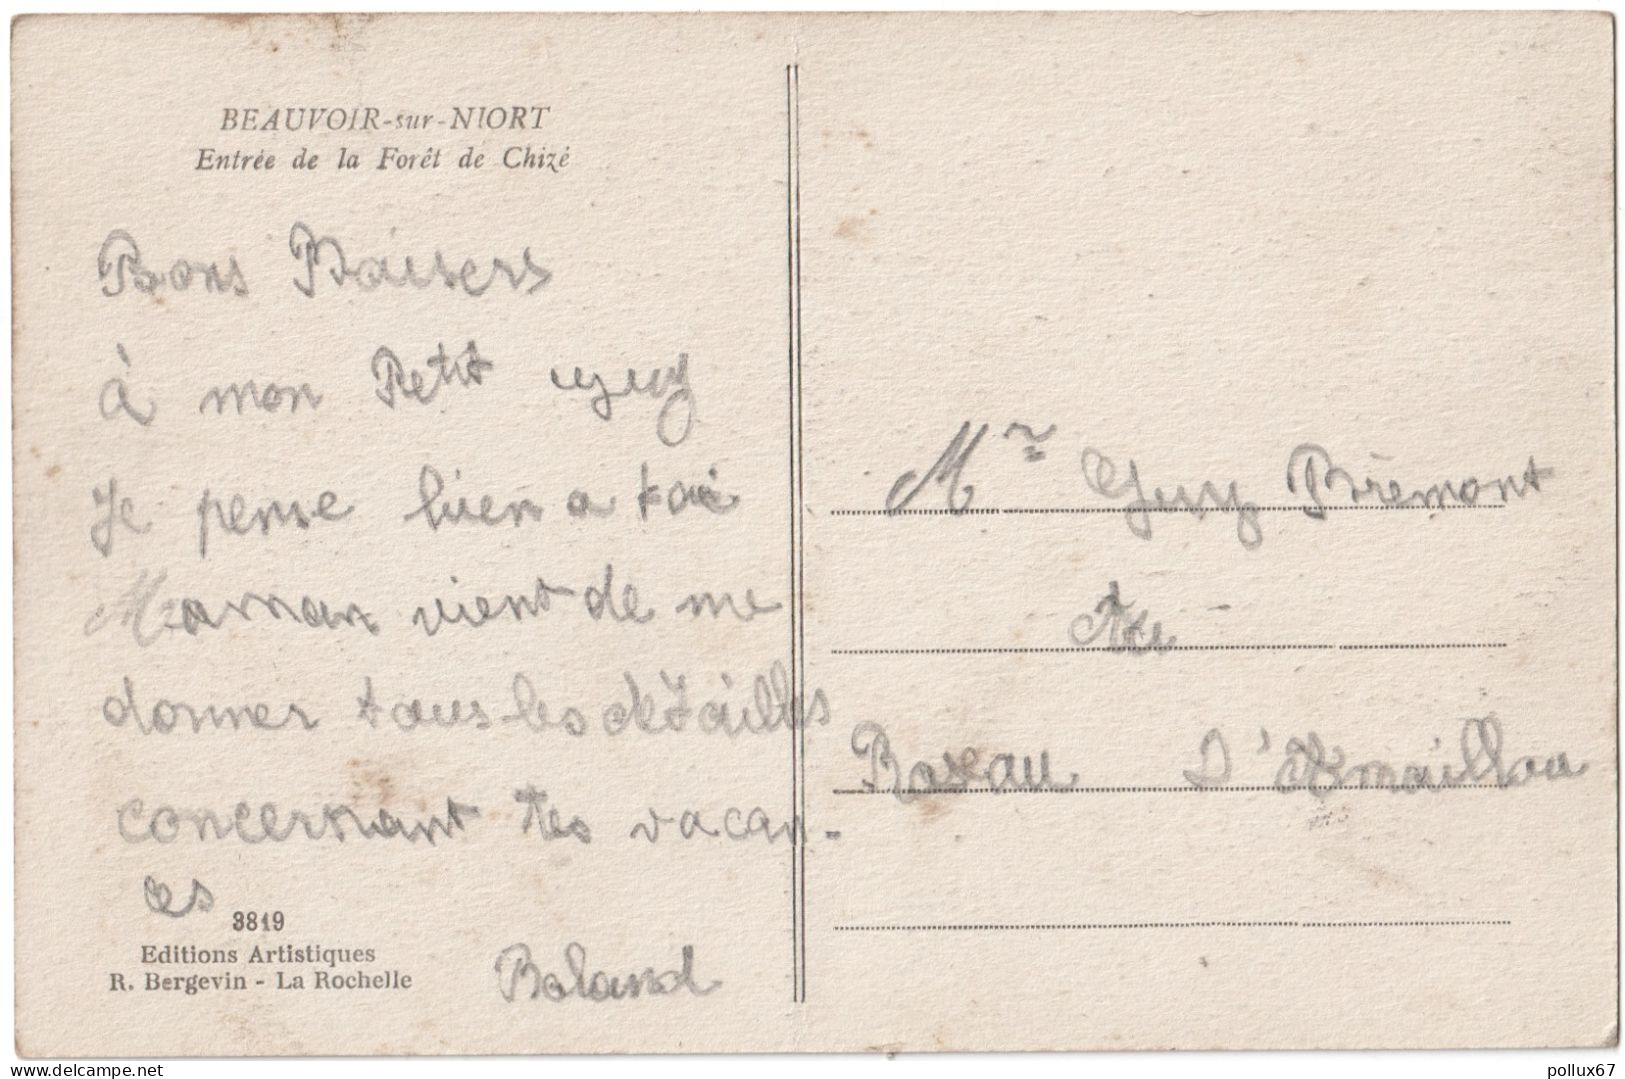 BEAUVOIR-sur-NIORT
Entrée de la Forêt de Chizé
Bons Baisers
à mon Petit Guy
Je pense bien a toi
Maman vient de me
donner tous les détailles
concernant tes vacan-
ces
3819
Editions Artistiques
R. Bergevin - La Rochelle
Roland
Mr Guy Brémont
D'Amaillou
delcampe.net
pollux67